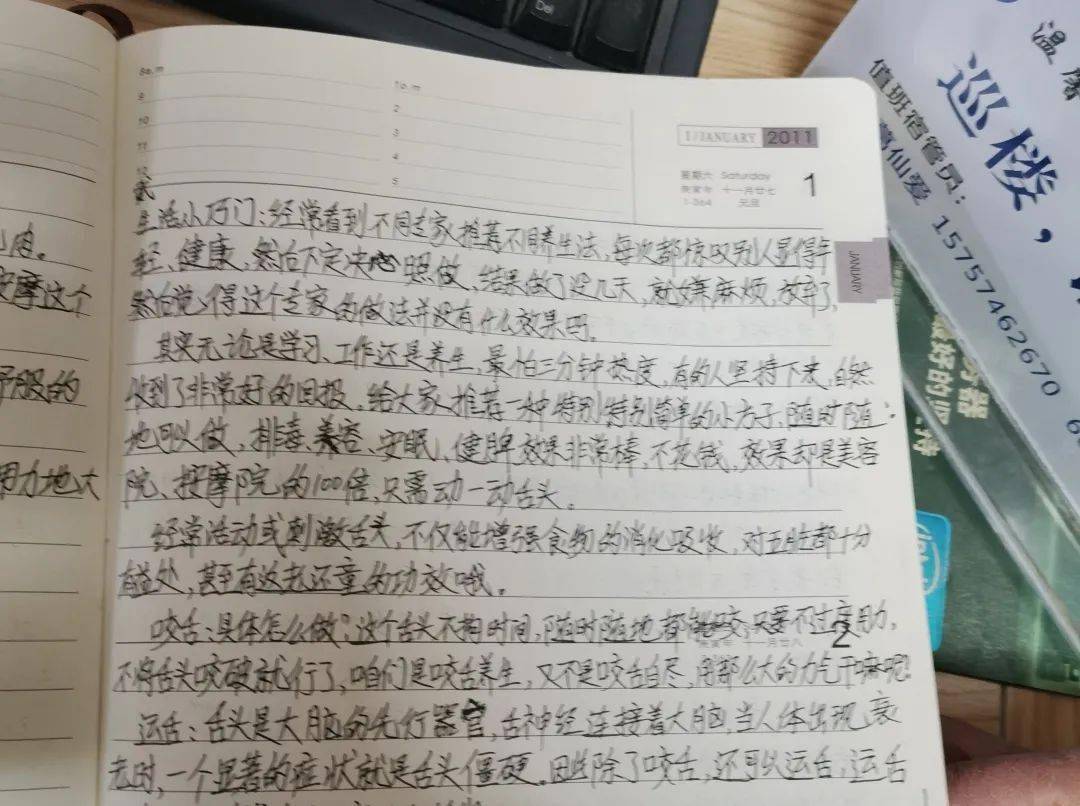 Del
8a.m
9
10
11
12
1p.m
2
3
4
5
1/JANUARY 2011
星期六 Saturday
庚寅年 十一月廿七
1-364 元旦
1
JANUARY
生活小巧门：经常看到不同专家推荐不同养生法，每次都惊叹别人显得年
轻、健康，然后下定决心照做，结果做了没几天，就嫌麻烦，放弃了，
然后觉得这个专家的做法并没有什么效果吗。
其实无论是学习、工作还是养生，最怕三分钟热度，有的人坚持下来，自然
收到了非常好的回报，给大家推荐一种特别特别简单的小方子，随时随
地可以做，排毒、美容、安眠、健脾效果非常棒，不花钱，效果却是美容
院、按摩院的100倍，只需动一动舌头。
经常活动或刺激舌头，不仅能增强食物的消化吸收，对五脏都十分
有益处，甚至有返老还童的功效哦。
咬舌：具体怎么做？这个舌头不拘时间，随时随地都能咬，只要不过度用力，
2
不将舌头咬破就行了，咱们是咬舌养生，又不是咬舌自尽，用那么大的力气干嘛呢？
运舌：舌头是大脑的先行器官，舌神经连接着大脑，当人体出现衰
老时，一个显著的症状就是舌头僵硬。因此除了咬舌，还可以运舌，运舌
按摩这个
舒服的
用力地大
巡楼，
值班宿管员：
仙爱 15757462670